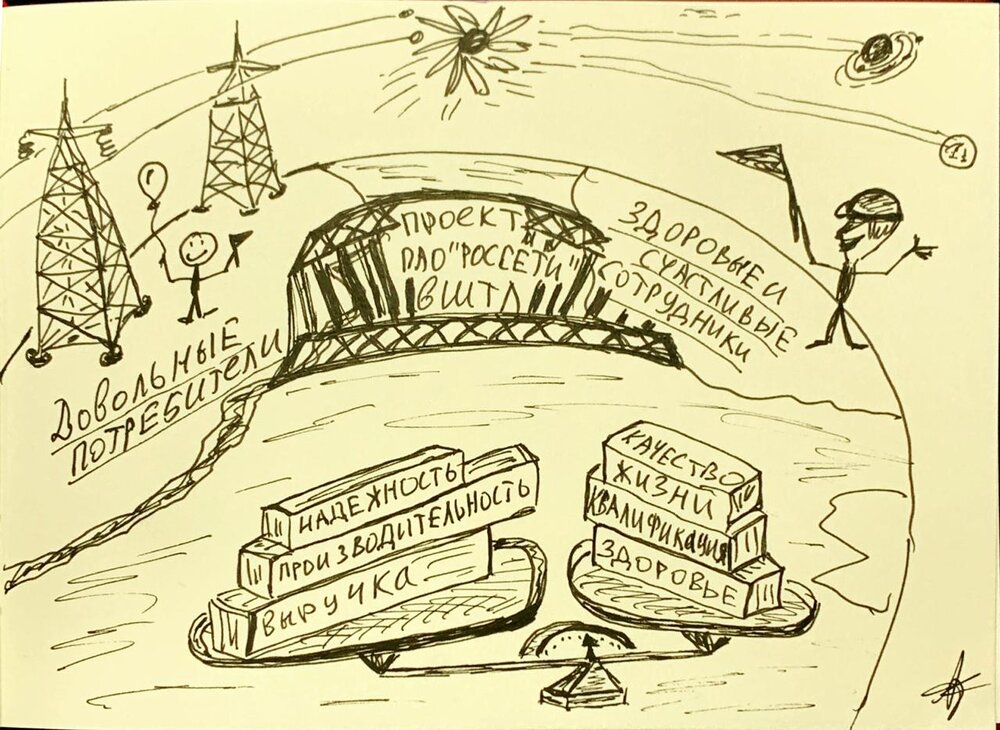 ПРОЕКТ
ПАО "РОССЕТИ"
ВШТЛ
ЗДОРОВЫЕ И
СЧАСТЛИВЫЕ
СОТРУДНИКИ
ДОВОЛЬНЫЕ
ПОТРЕБИТЕЛИ
НАДЕЖНОСТЬ
ПРОИЗВОДИТЕЛЬНОСТЬ
ВЫРУЧКА
КАЧЕСТВО
ЖИЗНИ
КВАЛИФИКАЦИЯ
ЗДОРОВЬЕ